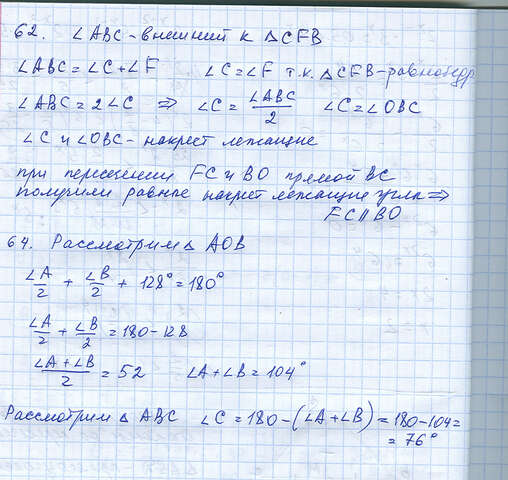 62. ∠ABC - внешний к △CFB
∠ABC = ∠C + ∠F ∠C = ∠F т.к. △CFB - равнобедр
∠ABC = 2∠C ⇒ ∠C = ∠ABC/2 ∠C = ∠OBC
∠C и ∠OBC - накрест лежащие
при пересечении FC и BO прямой BC
получили равные накрест лежащие углы ⇒
FC || BO
64. Рассмотрим △ AOB
∠A/2 + ∠B/2 + 128° = 180°
∠A/2 + ∠B/2 = 180 - 128
(∠A + ∠B)/2 = 52 ∠A + ∠B = 104°
Рассмотрим △ ABC ∠C = 180 - (∠A + ∠B) = 180 - 104 =
= 76°